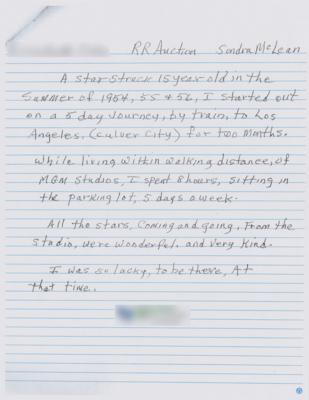 RR Auction Sondra McLean
A star struck 15 year old in the
Summer of 1954, 55 & 56, I started out
on a 5 day journey, by train, to Los
Angeles, (Culver City) for two months.
While living within walking distance, of
MGM Studios, I spent 8 hours, sitting in
the parking lot, 5 days a week.
All the stars, coming and going, from the
studio, were wonderful. and very kind.
I was so lucky, to be there, At
that time.